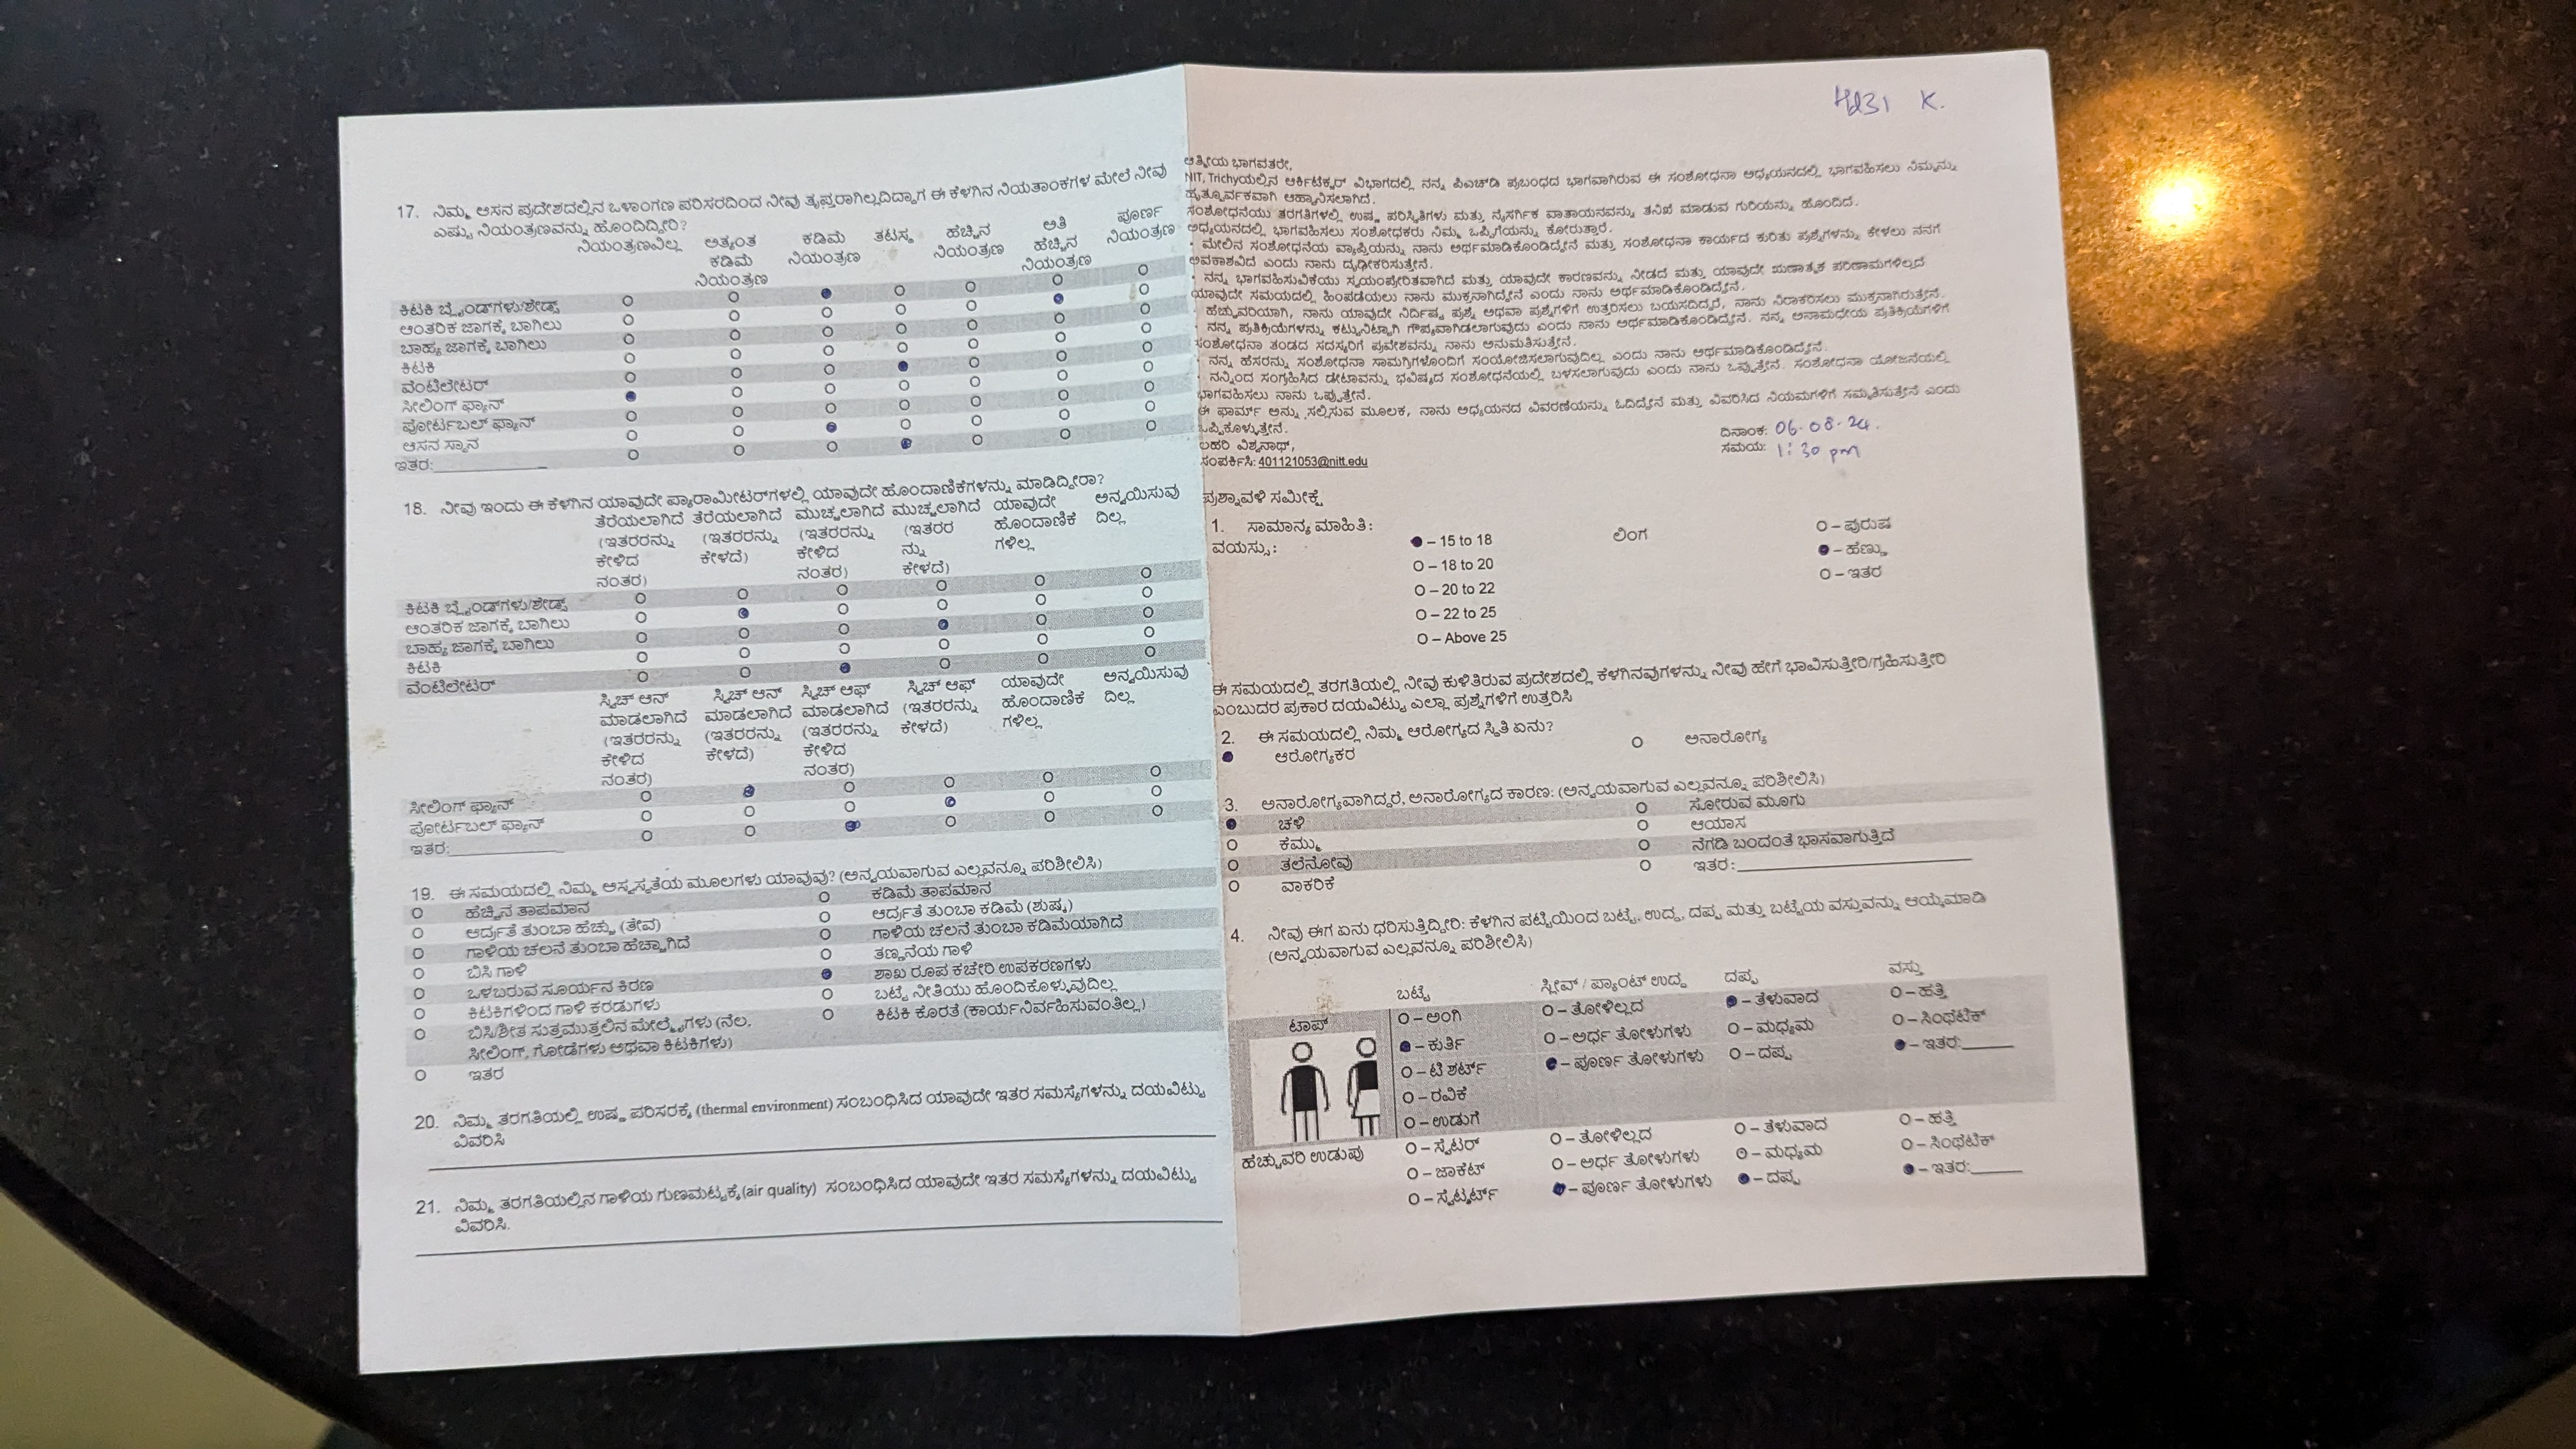 17. ನಿಮ್ಮ ಆಸನ ಪ್ರದೇಶದಲ್ಲಿನ ಒಳಾಂಗಣ ಪರಿಸರದಿಂದ ನೀವು ತೃಪ್ತರಾಗಿಲ್ಲದಿದ್ದಾಗ ಈ ಕೆಳಗಿನ ನಿಯತಾಂಕಗಳ ಮೇಲೆ ನೀವು
ಎಷ್ಟು ನಿಯಂತ್ರಣವನ್ನು ಹೊಂದಿದ್ದೀರಿ?
ನಿಯಂತ್ರಣವಿಲ್ಲ ಅತ್ಯಂತ ಕಡಿಮೆ ನಿಯಂತ್ರಣ ಕಡಿಮೆ ನಿಯಂತ್ರಣ ತಟಸ್ಥ ಹೆಚ್ಚಿನ ನಿಯಂತ್ರಣ ಅತಿ ಹೆಚ್ಚಿನ ನಿಯಂತ್ರಣ ಪೂರ್ಣ ನಿಯಂತ್ರಣ
ಕಿಟಕಿ ಬ್ಲೈಂಡ್‌ಗಳು/ಶೇಡ್ಸ್
ಆಂತರಿಕ ಜಾಗಕ್ಕೆ ಬಾಗಿಲು
ಬಾಹ್ಯ ಜಾಗಕ್ಕೆ ಬಾಗಿಲು
ಕಿಟಕಿ
ವೆಂಟಿಲೇಟರ್
ಸೀಲಿಂಗ್ ಫ್ಯಾನ್
ಪೋರ್ಟಬಲ್ ಫ್ಯಾನ್
ಆಸನ ಸ್ಥಾನ
ಇತರ:
18. ನೀವು ಇಂದು ಈ ಕೆಳಗಿನ ಯಾವುದೇ ಪ್ಯಾರಾಮೀಟರ್‌ಗಳಲ್ಲಿ ಯಾವುದೇ ಹೊಂದಾಣಿಕೆಗಳನ್ನು ಮಾಡಿದ್ದೀರಾ?
ತೆರೆಯಲಾಗಿದೆ (ಇತರರನ್ನು ಕೇಳಿದ ನಂತರ) ತೆರೆಯಲಾಗಿದೆ (ಇತರರನ್ನು ಕೇಳದೆ) ಮುಚ್ಚಲಾಗಿದೆ (ಇತರರನ್ನು ಕೇಳಿದ ನಂತರ) ಮುಚ್ಚಲಾಗಿದೆ (ಇತರರ ನ್ನು ಕೇಳದೆ) ಯಾವುದೇ ಹೊಂದಾಣಿಕೆ ಗಳಿಲ್ಲ ಅನ್ವಯಿಸುವು ದಿಲ್ಲ
ಕಿಟಕಿ ಬ್ಲೈಂಡ್‌ಗಳು/ಶೇಡ್ಸ್
ಆಂತರಿಕ ಜಾಗಕ್ಕೆ ಬಾಗಿಲು
ಬಾಹ್ಯ ಜಾಗಕ್ಕೆ ಬಾಗಿಲು
ಕಿಟಕಿ
ವೆಂಟಿಲೇಟರ್
ಸ್ವಿಚ್ ಆನ್ ಮಾಡಲಾಗಿದೆ (ಇತರರನ್ನು ಕೇಳಿದ ನಂತರ) ಸ್ವಿಚ್ ಆನ್ ಮಾಡಲಾಗಿದೆ (ಇತರರನ್ನು ಕೇಳದೆ) ಸ್ವಿಚ್ ಆಫ್ ಮಾಡಲಾಗಿದೆ (ಇತರರನ್ನು ಕೇಳಿದ ನಂತರ) ಸ್ವಿಚ್ ಆಫ್ (ಇತರರನ್ನು ಕೇಳದೆ) ಯಾವುದೇ ಹೊಂದಾಣಿಕೆ ಗಳಿಲ್ಲ ಅನ್ವಯಿಸುವು ದಿಲ್ಲ
ಸೀಲಿಂಗ್ ಫ್ಯಾನ್
ಪೋರ್ಟಬಲ್ ಫ್ಯಾನ್
ಇತರ:
19. ಈ ಸಮಯದಲ್ಲಿ ನಿಮ್ಮ ಅಸ್ವಸ್ಥತೆಯ ಮೂಲಗಳು ಯಾವುವು? (ಅನ್ವಯವಾಗುವ ಎಲ್ಲವನ್ನೂ ಪರಿಶೀಲಿಸಿ)
ಹೆಚ್ಚಿನ ತಾಪಮಾನ ಕಡಿಮೆ ತಾಪಮಾನ
ಆರ್ದ್ರತೆ ತುಂಬಾ ಹೆಚ್ಚು (ತೇವ) ಆರ್ದ್ರತೆ ತುಂಬಾ ಕಡಿಮೆ (ಶುಷ್ಕ)
ಗಾಳಿಯ ಚಲನೆ ತುಂಬಾ ಹೆಚ್ಚಾಗಿದೆ ಗಾಳಿಯ ಚಲನೆ ತುಂಬಾ ಕಡಿಮೆಯಾಗಿದೆ
ಬಿಸಿ ಗಾಳಿ ತಣ್ಣನೆಯ ಗಾಳಿ
ಒಳಬರುವ ಸೂರ್ಯನ ಕಿರಣ ಶಾಖ ರೂಪ ಕಚೇರಿ ಉಪಕರಣಗಳು
ಕಿಟಕಿಗಳಿಂದ ಗಾಳಿ ಕರಡುಗಳು ಬಟ್ಟೆ ನೀತಿಯು ಹೊಂದಿಕೊಳ್ಳುವುದಿಲ್ಲ
ಬಿಸಿ/ಶೀತ ಸುತ್ತಮುತ್ತಲಿನ ಮೇಲ್ಮೈಗಳು (ನೆಲ, ಕಿಟಕಿ ಕೊರತೆ (ಕಾರ್ಯನಿರ್ವಹಿಸುವಂತಿಲ್ಲ)
ಸೀಲಿಂಗ್, ಗೋಡೆಗಳು ಅಥವಾ ಕಿಟಕಿಗಳು)
ಇತರ
20. ನಿಮ್ಮ ತರಗತಿಯಲ್ಲಿ ಉಷ್ಣ ಪರಿಸರಕ್ಕೆ (thermal environment) ಸಂಬಂಧಿಸಿದ ಯಾವುದೇ ಇತರ ಸಮಸ್ಯೆಗಳನ್ನು ದಯವಿಟ್ಟು
ವಿವರಿಸಿ
21. ನಿಮ್ಮ ತರಗತಿಯಲ್ಲಿನ ಗಾಳಿಯ ಗುಣಮಟ್ಟಕ್ಕೆ (air quality) ಸಂಬಂಧಿಸಿದ ಯಾವುದೇ ಇತರ ಸಮಸ್ಯೆಗಳನ್ನು ದಯವಿಟ್ಟು
ವಿವರಿಸಿ.
K.
ಆತ್ಮೀಯ ಭಾಗವತರೇ,
NIT, Trichyಯಲ್ಲಿನ ಆರ್ಕಿಟೆಕ್ಚರ್ ವಿಭಾಗದಲ್ಲಿ ನನ್ನ ಪಿಎಚ್‌ಡಿ ಪ್ರಬಂಧದ ಭಾಗವಾಗಿರುವ ಈ ಸಂಶೋಧನಾ ಅಧ್ಯಯನದಲ್ಲಿ ಭಾಗವಹಿಸಲು ನಿಮ್ಮನ್ನು
ಹೃತ್ಪೂರ್ವಕವಾಗಿ ಆಹ್ವಾನಿಸಲಾಗಿದೆ.
ಸಂಶೋಧನೆಯು ತರಗತಿಗಳಲ್ಲಿ ಉಷ್ಣ ಪರಿಸ್ಥಿತಿಗಳು ಮತ್ತು ನೈಸರ್ಗಿಕ ವಾತಾಯನವನ್ನು ತನಿಖೆ ಮಾಡುವ ಗುರಿಯನ್ನು ಹೊಂದಿದೆ.
ಅಧ್ಯಯನದಲ್ಲಿ ಭಾಗವಹಿಸಲು ಸಂಶೋಧಕರು ನಿಮ್ಮ ಒಪ್ಪಿಗೆಯನ್ನು ಕೋರುತ್ತಾರೆ.
· ಮೇಲಿನ ಸಂಶೋಧನೆಯ ವ್ಯಾಪ್ತಿಯನ್ನು ನಾನು ಅರ್ಥಮಾಡಿಕೊಂಡಿದ್ದೇನೆ ಮತ್ತು ಸಂಶೋಧನಾ ಕಾರ್ಯದ ಕುರಿತು ಪ್ರಶ್ನೆಗಳನ್ನು ಕೇಳಲು ನನಗೆ
ಅವಕಾಶವಿದೆ ಎಂದು ನಾನು ದೃಢೀಕರಿಸುತ್ತೇನೆ.
· ನನ್ನ ಭಾಗವಹಿಸುವಿಕೆಯು ಸ್ವಯಂಪ್ರೇರಿತವಾಗಿದೆ ಮತ್ತು ಯಾವುದೇ ಕಾರಣವನ್ನು ನೀಡದೆ ಮತ್ತು ಯಾವುದೇ ಋಣಾತ್ಮಕ ಪರಿಣಾಮಗಳಿಲ್ಲದೆ
ಯಾವುದೇ ಸಮಯದಲ್ಲಿ ಹಿಂಪಡೆಯಲು ನಾನು ಮುಕ್ತನಾಗಿದ್ದೇನೆ ಎಂದು ನಾನು ಅರ್ಥಮಾಡಿಕೊಂಡಿದ್ದೇನೆ.
· ಹೆಚ್ಚುವರಿಯಾಗಿ, ನಾನು ಯಾವುದೇ ನಿರ್ದಿಷ್ಟ ಪ್ರಶ್ನೆ ಅಥವಾ ಪ್ರಶ್ನೆಗಳಿಗೆ ಉತ್ತರಿಸಲು ಬಯಸದಿದ್ದರೆ, ನಾನು ನಿರಾಕರಿಸಲು ಮುಕ್ತನಾಗಿರುತ್ತೇನೆ.
· ನನ್ನ ಪ್ರತಿಕ್ರಿಯೆಗಳನ್ನು ಕಟ್ಟುನಿಟ್ಟಾಗಿ ಗೌಪ್ಯವಾಗಿಡಲಾಗುವುದು ಎಂದು ನಾನು ಅರ್ಥಮಾಡಿಕೊಂಡಿದ್ದೇನೆ. ನನ್ನ ಅನಾಮಧೇಯ ಪ್ರತಿಕ್ರಿಯೆಗಳಿಗೆ
ಸಂಶೋಧನಾ ತಂಡದ ಸದಸ್ಯರಿಗೆ ಪ್ರವೇಶವನ್ನು ನಾನು ಅನುಮತಿಸುತ್ತೇನೆ.
· ನನ್ನ ಹೆಸರನ್ನು ಸಂಶೋಧನಾ ಸಾಮಗ್ರಿಗಳೊಂದಿಗೆ ಸಂಯೋಜಿಸಲಾಗುವುದಿಲ್ಲ ಎಂದು ನಾನು ಅರ್ಥಮಾಡಿಕೊಂಡಿದ್ದೇನೆ.
· ನನ್ನಿಂದ ಸಂಗ್ರಹಿಸಿದ ಡೇಟಾವನ್ನು ಭವಿಷ್ಯದ ಸಂಶೋಧನೆಯಲ್ಲಿ ಬಳಸಲಾಗುವುದು ಎಂದು ನಾನು ಒಪ್ಪುತ್ತೇನೆ. ಸಂಶೋಧನಾ ಯೋಜನೆಯಲ್ಲಿ
ಭಾಗವಹಿಸಲು ನಾನು ಒಪ್ಪುತ್ತೇನೆ.
ಈ ಫಾರ್ಮ್ ಅನ್ನು ಸಲ್ಲಿಸುವ ಮೂಲಕ, ನಾನು ಅಧ್ಯಯನದ ವಿವರಣೆಯನ್ನು ಓದಿದ್ದೇನೆ ಮತ್ತು ವಿವರಿಸಿದ ನಿಯಮಗಳಿಗೆ ಸಮ್ಮತಿಸುತ್ತೇನೆ ಎಂದು
ಒಪ್ಪಿಕೊಳ್ಳುತ್ತೇನೆ.
ಲಹರಿ ವಿಶ್ವನಾಥ್, ದಿನಾಂಕ: 06.08.24.
ಸಂಪರ್ಕಿಸಿ: 401121053@nitt.edu ಸಮಯ: 1:30 pm
ಪ್ರಶ್ನಾವಳಿ ಸಮೀಕ್ಷೆ
1. ಸಾಮಾನ್ಯ ಮಾಹಿತಿ:
ವಯಸ್ಸು: – 15 to 18 ಲಿಂಗ O – ಪುರುಷ
O – 18 to 20 – ಹೆಣ್ಣು
O – 20 to 22 O – ಇತರ
O – 22 to 25
O – Above 25
ಈ ಸಮಯದಲ್ಲಿ ತರಗತಿಯಲ್ಲಿ ನೀವು ಕುಳಿತಿರುವ ಪ್ರದೇಶದಲ್ಲಿ ಕೆಳಗಿನವುಗಳನ್ನು ನೀವು ಹೇಗೆ ಭಾವಿಸುತ್ತೀರಿ/ಗ್ರಹಿಸುತ್ತೀರಿ
ಎಂಬುದರ ಪ್ರಕಾರ ದಯವಿಟ್ಟು ಎಲ್ಲಾ ಪ್ರಶ್ನೆಗಳಿಗೆ ಉತ್ತರಿಸಿ
2. ಈ ಸಮಯದಲ್ಲಿ ನಿಮ್ಮ ಆರೋಗ್ಯದ ಸ್ಥಿತಿ ಏನು?
ಆರೋಗ್ಯಕರ ಅನಾರೋಗ್ಯ
3. ಅನಾರೋಗ್ಯವಾಗಿದ್ದರೆ, ಅನಾರೋಗ್ಯದ ಕಾರಣ: (ಅನ್ವಯವಾಗುವ ಎಲ್ಲವನ್ನೂ ಪರಿಶೀಲಿಸಿ)
ಚಳಿ ಸೋರುವ ಮೂಗು
ಕೆಮ್ಮು ಆಯಾಸ
ತಲೆನೋವು ನೆಗಡಿ ಬಂದಂತೆ ಭಾಸವಾಗುತ್ತಿದೆ
ವಾಕರಿಕೆ ಇತರ:
4. ನೀವು ಈಗ ಏನು ಧರಿಸುತ್ತಿದ್ದೀರಿ: ಕೆಳಗಿನ ಪಟ್ಟಿಯಿಂದ ಬಟ್ಟೆ, ಉದ್ದ, ದಪ್ಪ ಮತ್ತು ಬಟ್ಟೆಯ ವಸ್ತುವನ್ನು ಆಯ್ಕೆಮಾಡಿ
(ಅನ್ವಯವಾಗುವ ಎಲ್ಲವನ್ನೂ ಪರಿಶೀಲಿಸಿ)
ಬಟ್ಟೆ ಸ್ಲೀವ್ / ಪ್ಯಾಂಟ್ ಉದ್ದ ದಪ್ಪ ವಸ್ತು
ಟಾಪ್ O – ಅಂಗಿ O – ತೋಳಿಲ್ಲದ – ತೆಳುವಾದ O – ಹತ್ತಿ
– ಕುರ್ತಿ O – ಅರ್ಧ ತೋಳುಗಳು O – ಮಧ್ಯಮ O – ಸಿಂಥಟಿಕ್
O – ಟಿ ಶರ್ಟ್ – ಪೂರ್ಣ ತೋಳುಗಳು O – ದಪ್ಪ – ಇತರ:
O – ರವಿಕೆ
O – ಉಡುಗೆ
ಹೆಚ್ಚುವರಿ ಉಡುಪು O – ಸ್ವೆಟರ್ O – ತೋಳಿಲ್ಲದ O – ತೆಳುವಾದ O – ಹತ್ತಿ
O – ಜಾಕೆಟ್ O – ಅರ್ಧ ತೋಳುಗಳು O – ಮಧ್ಯಮ O – ಸಿಂಥಟಿಕ್
O – ಸ್ವೆಟ್ಶರ್ಟ್ – ಪೂರ್ಣ ತೋಳುಗಳು – ದಪ್ಪ – ಇತರ: